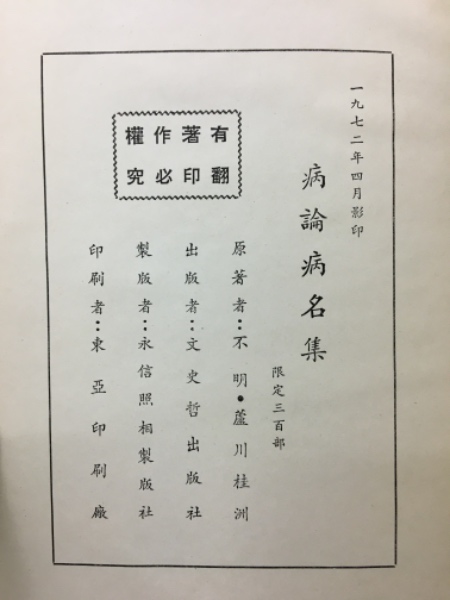 一九七二年四月影印
病論病名集
限定三百部
有著作權
翻印必究
原著者：不明•蘆川桂洲
出版者：文史哲出版社
製版者：永信照相製版社
印刷者：東亞印刷廠